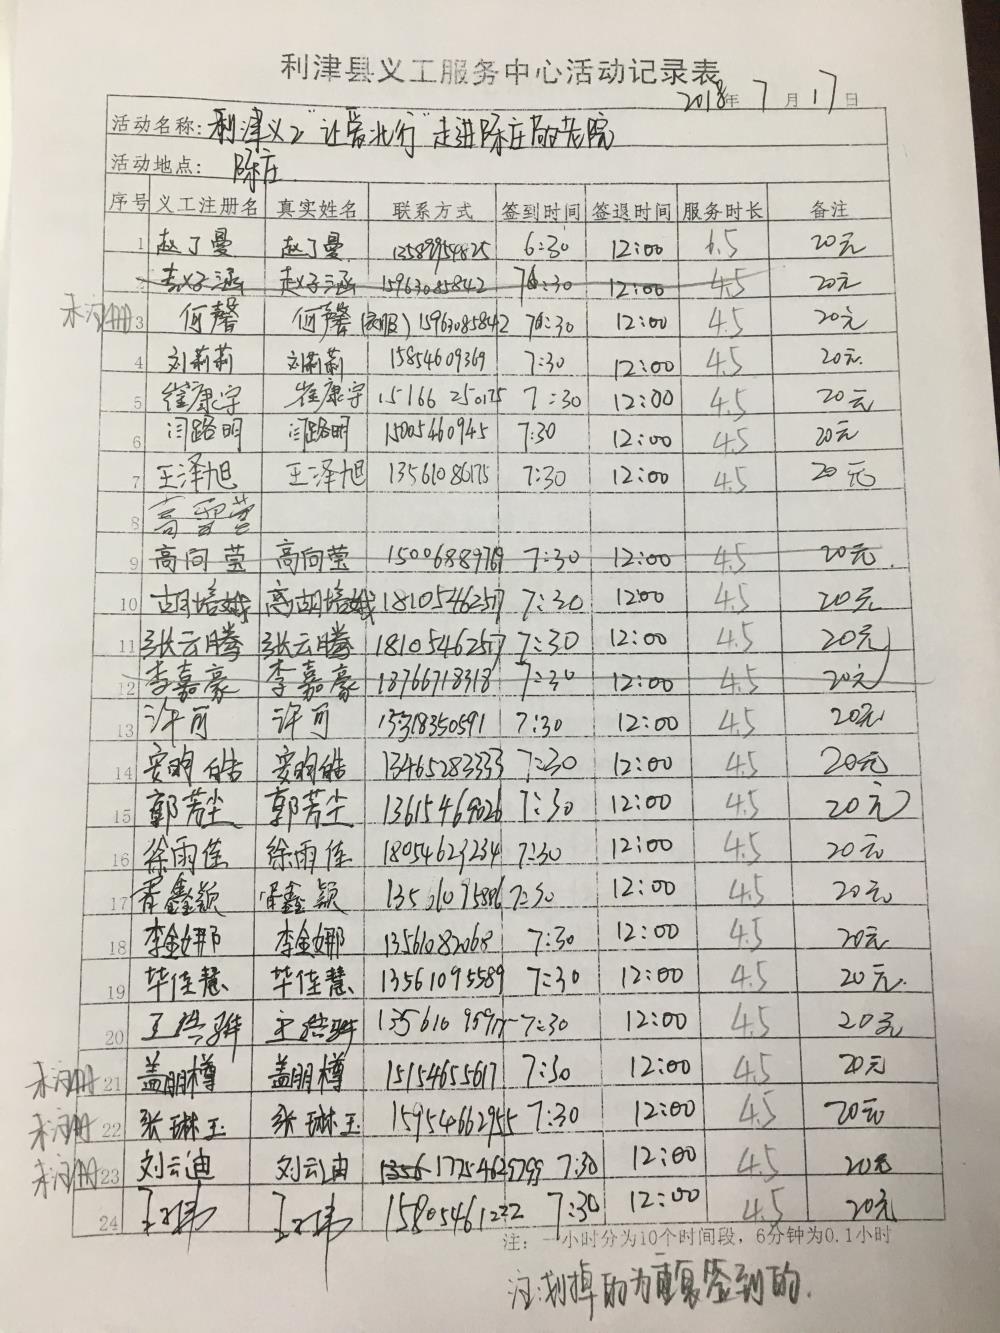 利津县义工服务中心活动记录表
2018年 7 月 17 日
活动名称: 利津义工"让爱北行"走进陈庄敬老院
活动地点: 陈庄
序号 义工注册名 真实姓名 联系方式 签到时间 签退时间 服务时长 备注
1 赵丁曼 赵丁曼 13589954825 6:30 12:00 20元
2 赵子涵 赵子涵 15963085842 :30 12:00 4.5 20元
未注册 3 何馨 何馨 15963085842 :30 12:00 4.5 20元
4 刘莉莉 刘莉莉 15854609369 7:30 12:00 4.5 20元
5 崔康宇 崔康宇 15166250175 7:30 12:00 4.5 20元
6 闫路明 闫路明 15005460945 7:30 12:00 4.5 20元
7 王泽旭 王泽旭 13561086175 7:30 12:00 4.5 20元
8 高
9 高向莹 高向莹 15006889769 7:30 12:00 4.5 20元
10 胡培娥 胡培娥 18105462517 7:30 1200 4.5 20元
11 张云腾 张云腾 18105462517 7:30 12:00 4.5 20元
12 李嘉豪 李嘉豪 18766718318 7:30 12:00 4.5 20元
13 许可 许可 13318350591 7:30 12:00 4.5 20元
14 安明皓 安明皓 13465283333 7:30 12:00 4.5 20元
15 郭芳尘 郭芳尘 13615469026 7:30 12:00 4.5 20元
16 徐雨佳 徐雨佳 18054623234 7:30 12:00 4.5 20元
17 鑫颖 鑫颖 13561075886 7:30 12:00 4.5 20元
18 李金娜 李金娜 13561082068 7:30 12:00 4.5 20元
19 毕佳慧 毕佳慧 13561095589 7:30 12:00 4.5 20元.
20 王 王 7:30 12:00 4.5 20元
未注册 21 盖朋樽 盖朋樽 15154655617 7:30 12:00 4.5 20元
未注册 22 张琳玉 张琳玉 15954662955 7:30 12:00 4.5 20元
未注册 23 刘云迪 刘云迪 17754629799 7:30 12:00 4.5 20元
24 王 王 15805461232 7:30 12:00 4.5 20元
注: 一小时分为10个时间段, 6分钟为0.1小时
注:划掉的为重复签到的.